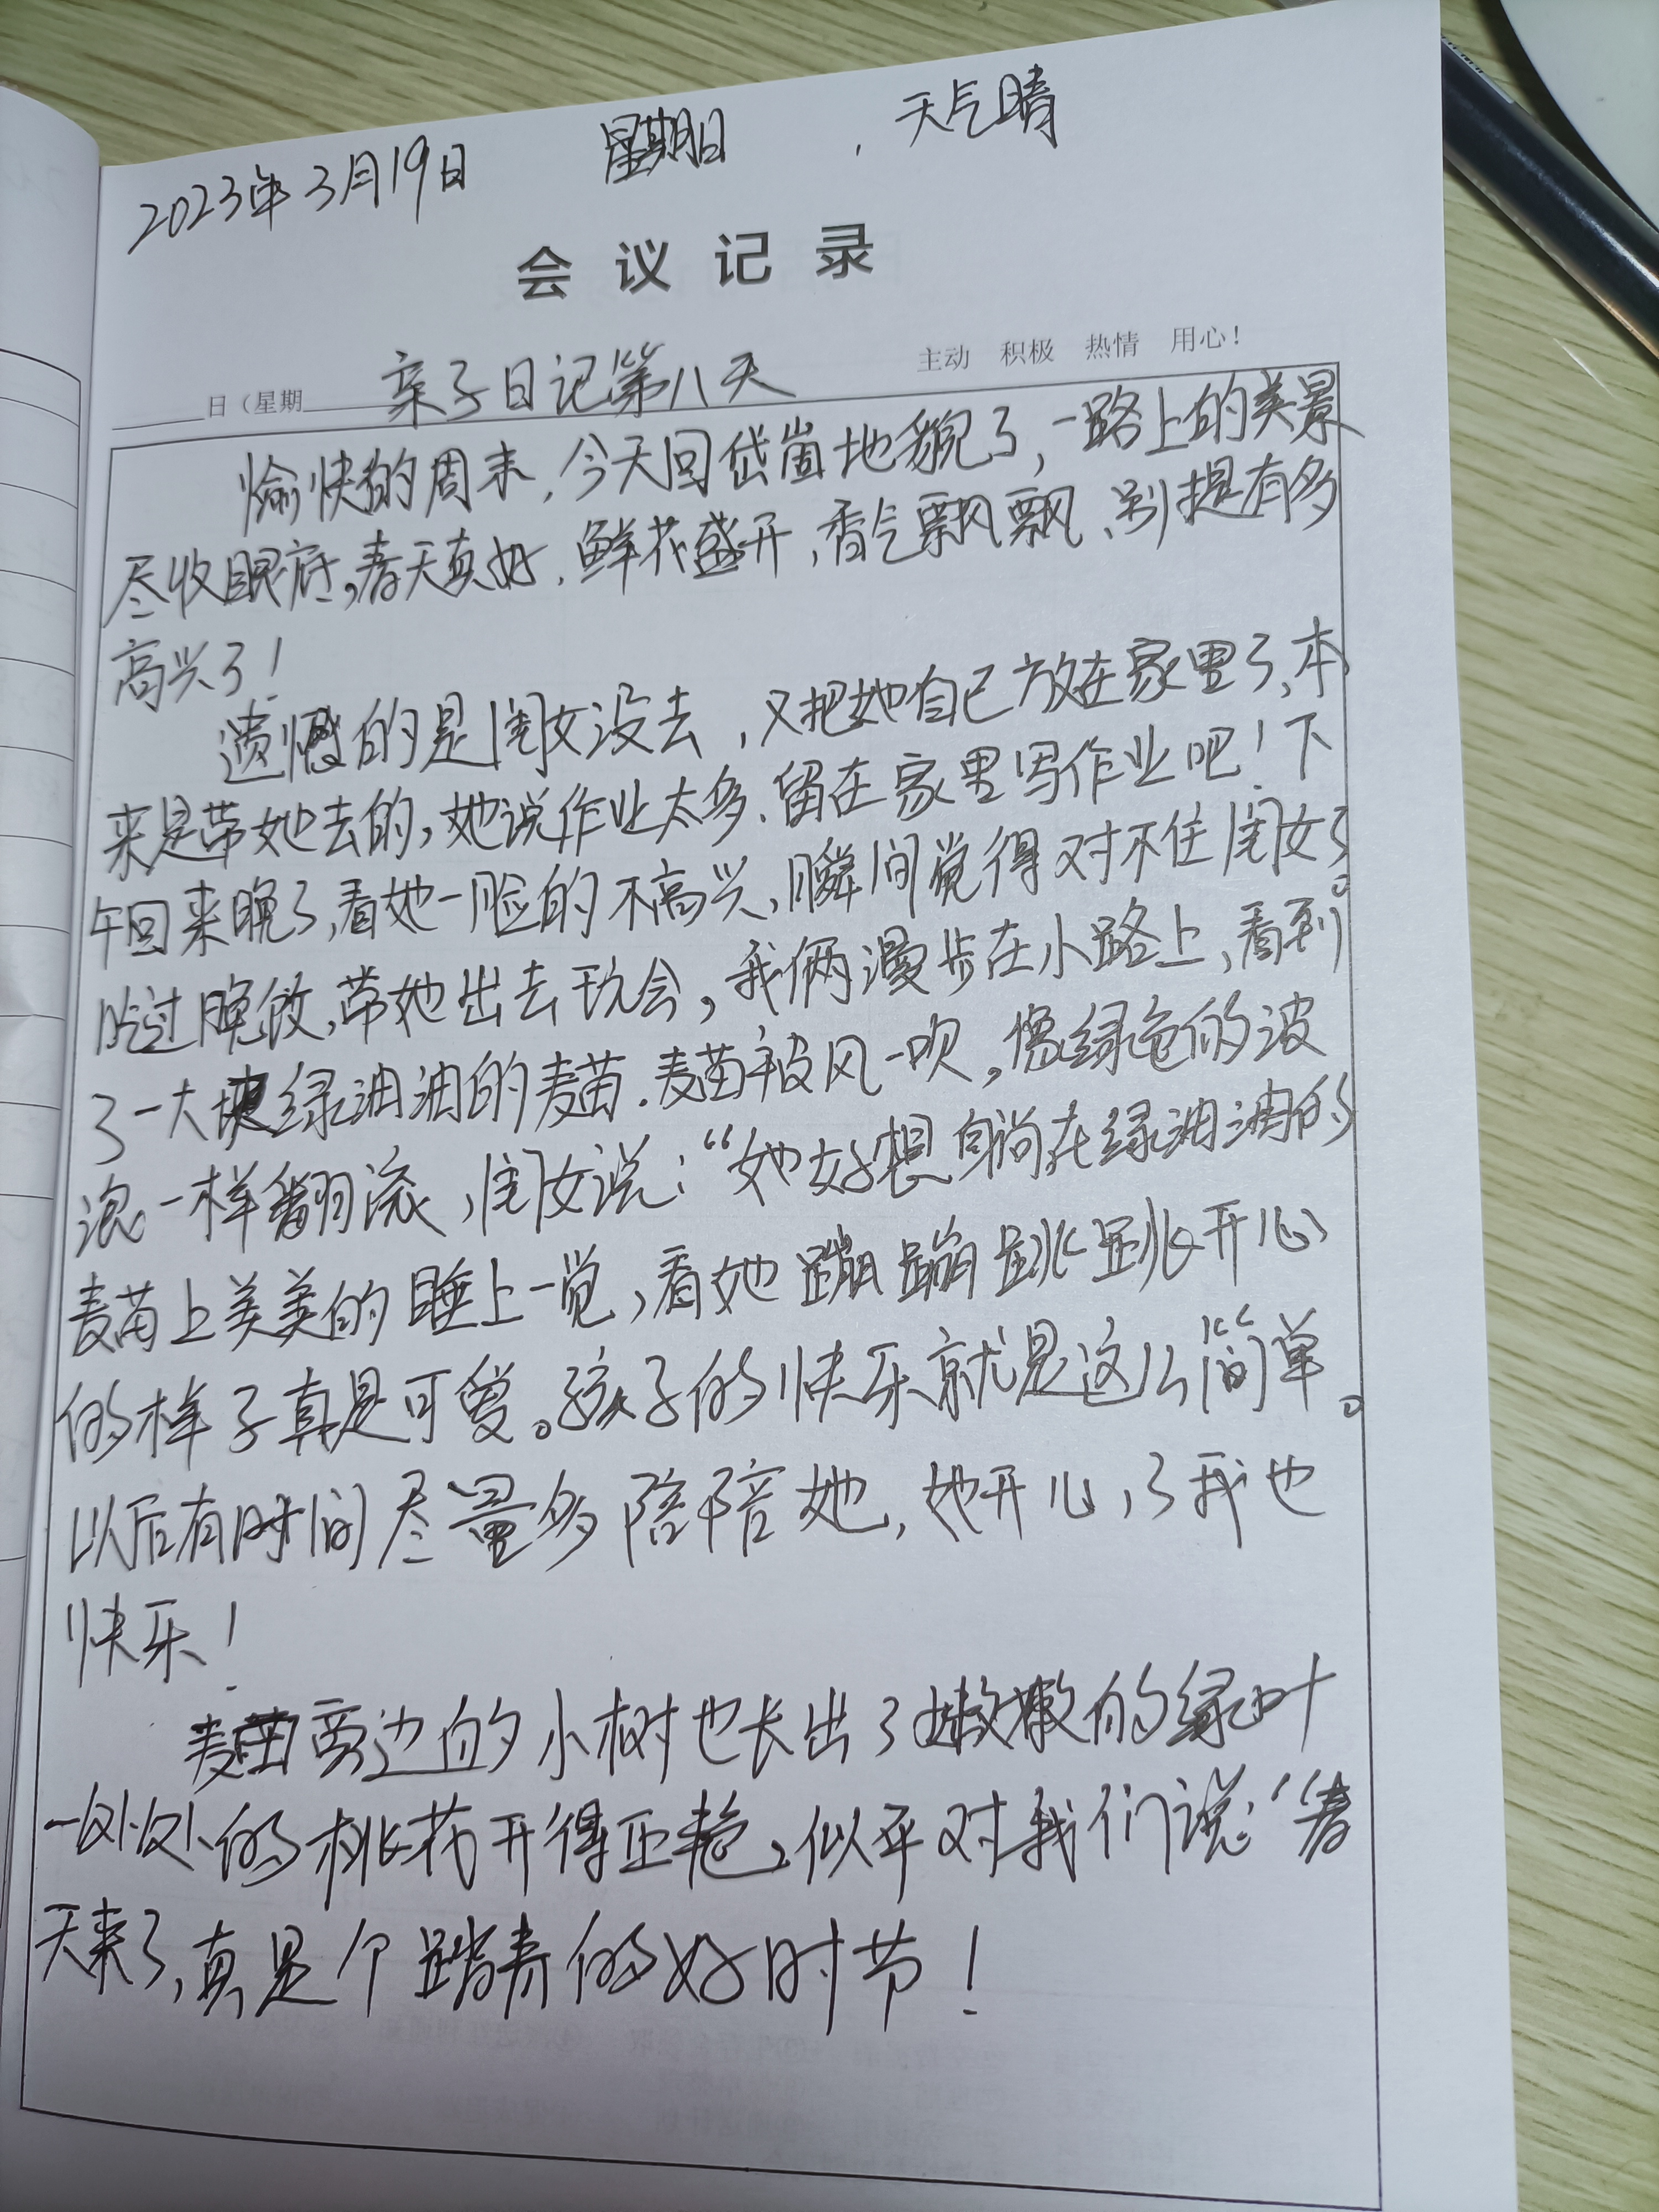 2023年3月19日 星期日 . 天气晴
会议记录
日(星期 亲子日记第八天 主动 积极 热情 用心!
愉快的周末,今天回岱崮地貌了,一路上的美景
尽收眼底,春天真好,鲜花盛开,香气飘飘、别提有多
高兴了!
遗憾的是闺女没去,又把她自己放在家里了,本
来是带她去的,她说作业太多,留在家里写作业吧!下
午回来晚了,看她一脸的不高兴,瞬间觉得对不住闺女了。
吃过晚饭,带她出去玩会,我俩漫步在小路上,看到
了一大块绿油油的麦苗.麦苗被风一吹,像绿色的波
浪一样翻滚,闺女说:“她好想躺在绿油油的
麦苗上美美的睡上一觉,看她蹦蹦跳跳开心
的样子真是可爱。孩子的快乐就是这么简单。
以后有时间尽量多陪陪她,她开心,了我也
快乐!
麦苗旁边的小树也长出了嫩嫩的绿叶
一处处的桃花开得正艳,似乎对我们说:“春
天来了,真是个踏青的好时节!